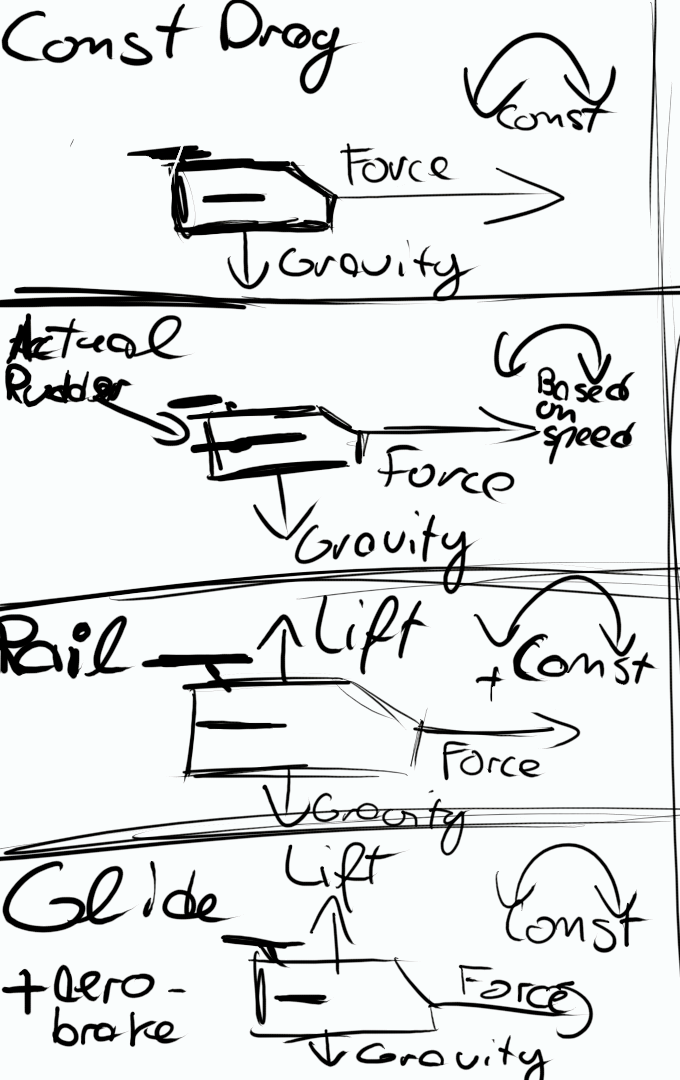 Const Drag
Const
Force
Gravity
Actual
Rudder
Based
on
speed
Force
Gravity
Rail
Lift
+ Const
Force
Gravity
Lift
Glide
Const
+ aero-
brake
Force
Gravity